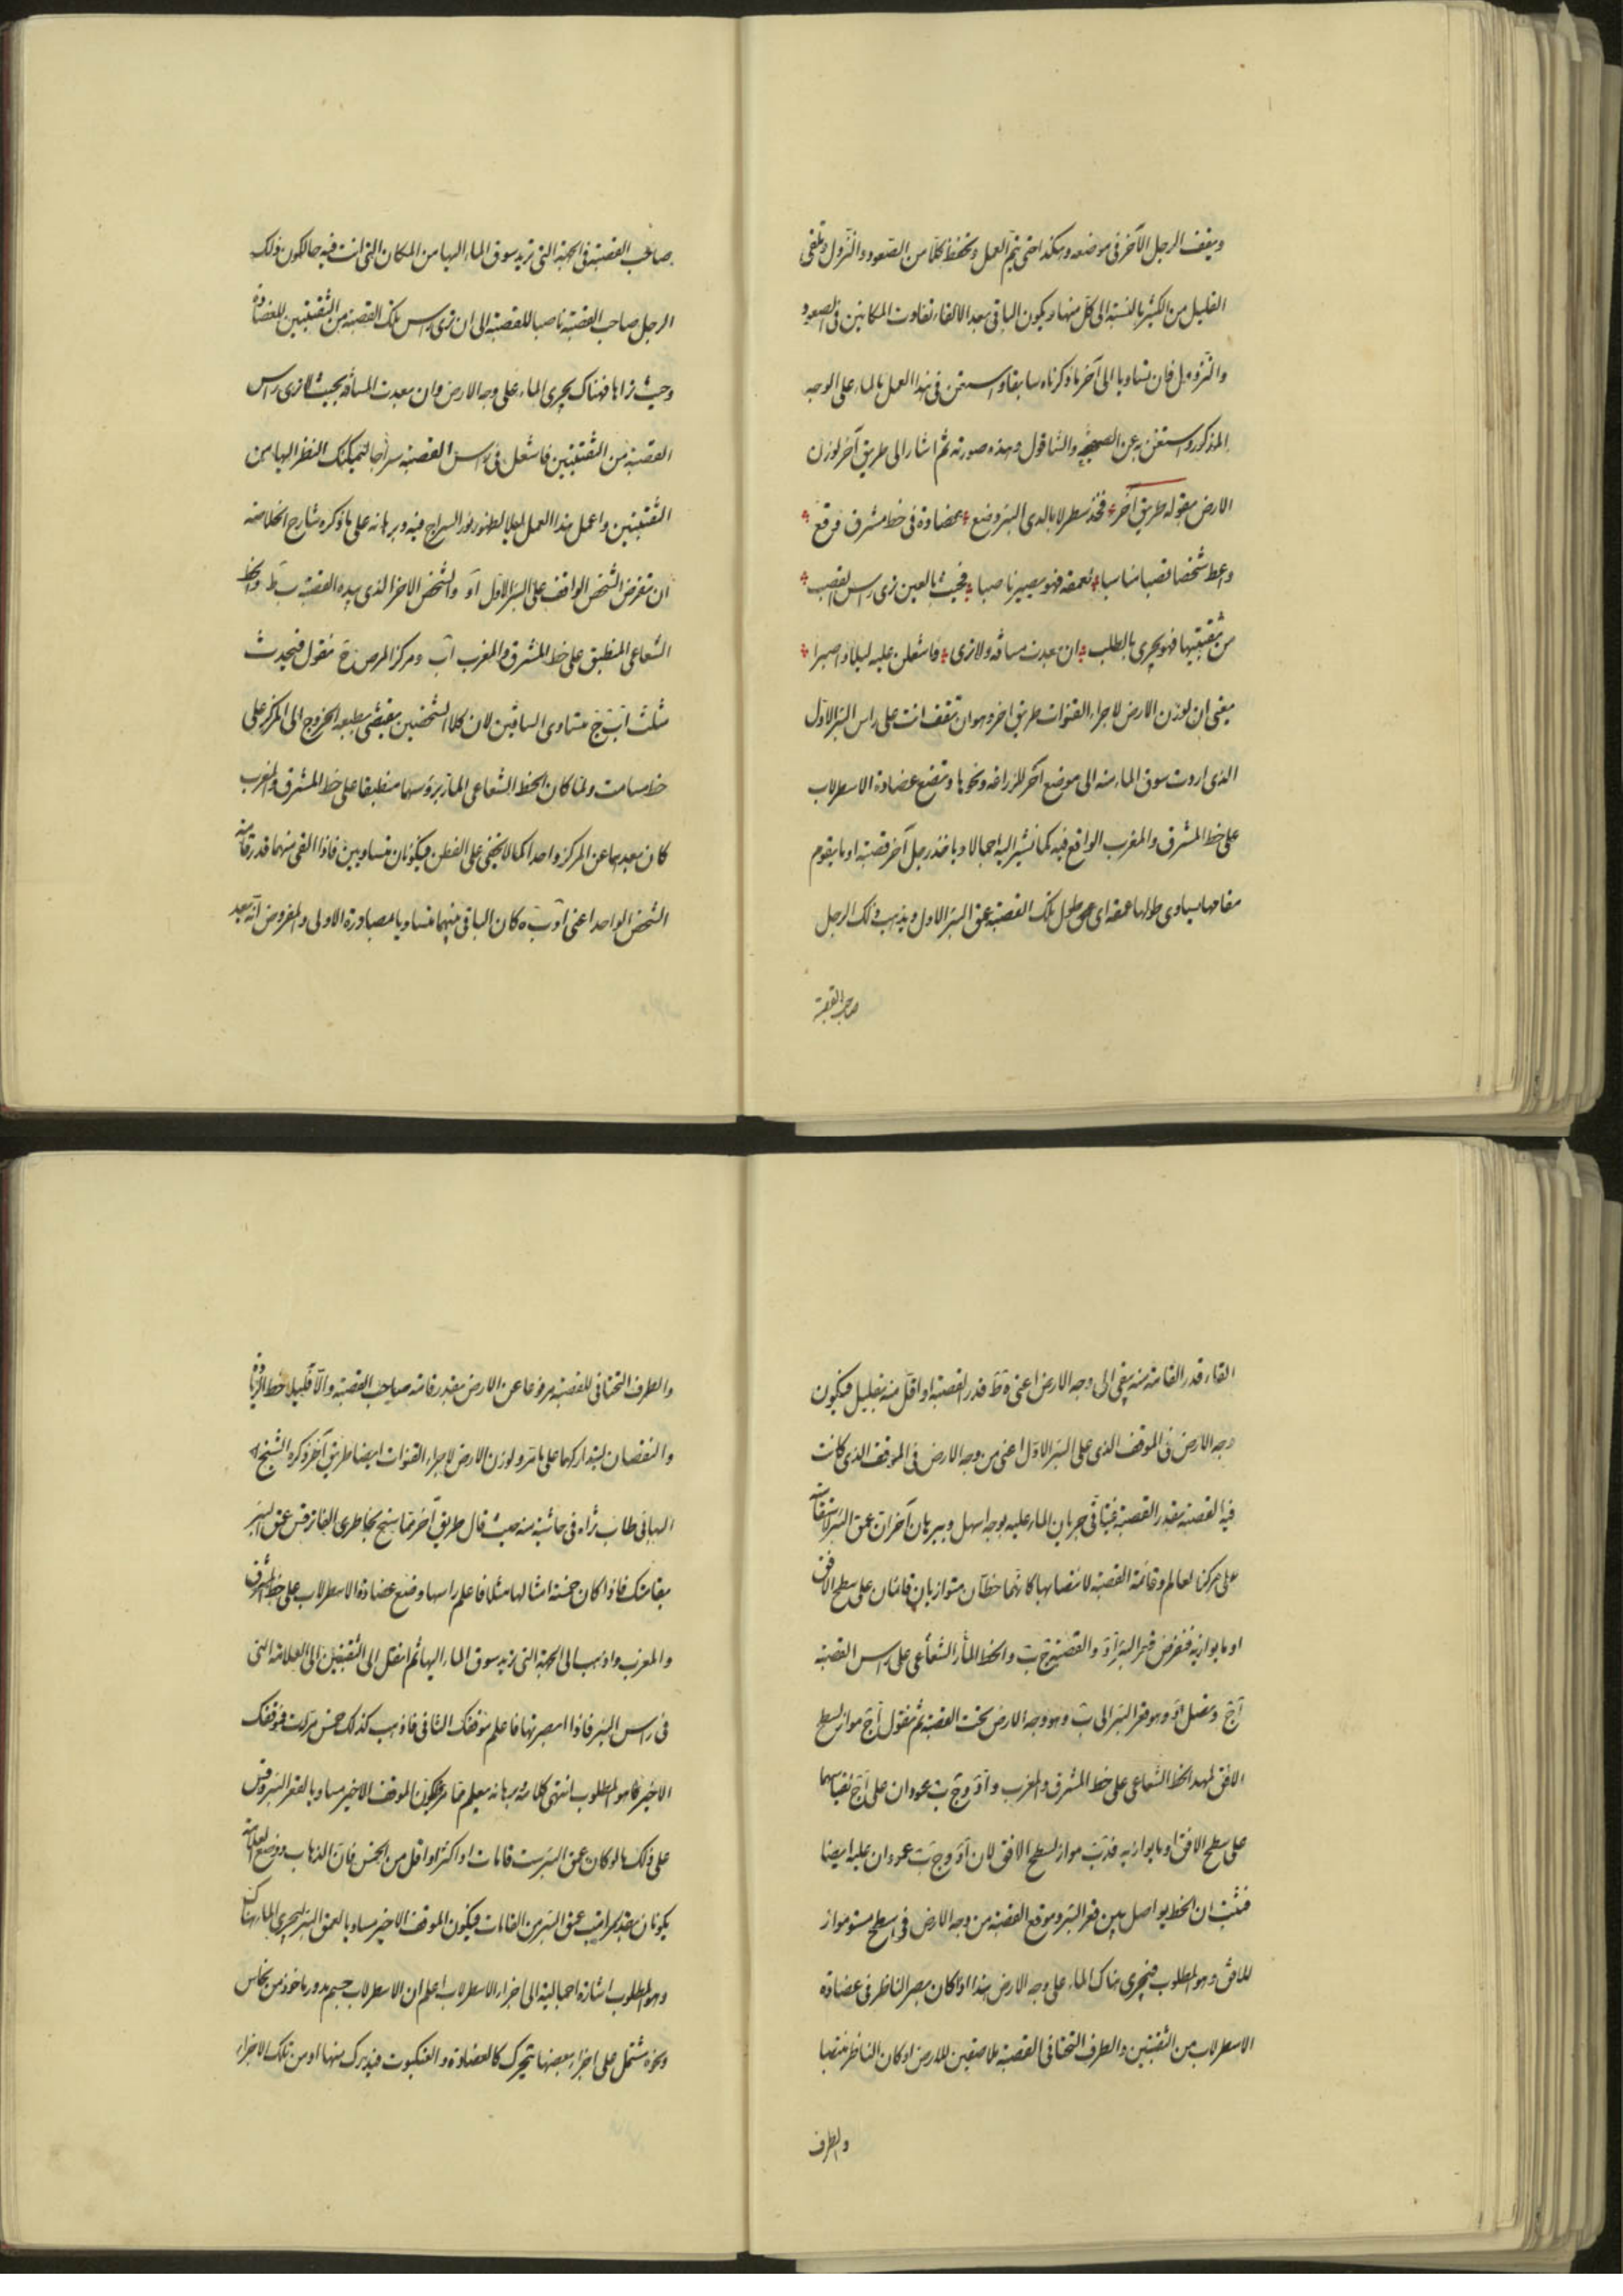 ويقف الرجل الآخر فى موضعه وهكذا حتى يتم العمل وتحفظ كلا من الصعود والنزول وتلقى
القليل من الكثير بالنسبة الى كل منهما ويكون الباقى بعد الالقاء تفاوت المكانين فى الصعود
والنزول فان تساويا الى آخر ما ذكرناه سابقا واستعن فى هذا العمل بالماء على الوجه
المذكور واستغن به عن الصحيفة والشاقول وهذه صورته ثم اشار الى طريق آخر لوزن
الارض بقوله طريق آخر فخذ سطرلابا لدى البئر وضع عضادة فى خط مشرق فرقع
واعط شخصا قصبا مناسبا لعمقه فهو يسير ناصبا فحيث بالعين ترى راس القصب
من ثقبتيها فهو يجرى بالطلب ان بعدت مسافه ولا ترى فاشعلن عليه ليلا واصبرا
يعنى ان لوزن الارض لاجراء القنوات طريق اخر وهو ان تقف انت على راس البئر الاول
الذى اردت سوق الماء منه الى موضع آخر للزراعة ونحوها وتضع عضادة الاسطرلاب
على خط المشرق والمغرب الواقع فيه كما نشير اليه اجمالا وياخذ رجل آخر قصبة او ما يقوم
مقامها يساوى طولها عمقه اى طول تلك القصبة عمق البئر الاول ويذهب ذلك الرجل
صاحب القصبة
صاحب القصبة فى الجهة التى تريد سوق الماء اليها من المكان الذى انت فيه حال كون ذلك
الرجل صاحب القصبة ناصبا للقصبة الى ان ترى راس تلك القصبة من الثقبتين للعضادة
وحيث تراها فهناك يجرى الماء على وجه الارض وان بعدت المسافة بحيث لا ترى راس
القصبة من الثقبتين فاشعل فى راس القصبة سراجا ليمكنك النظر اليها من
الثقبتين واعمل هذا العمل ليلا لظهور نور السراج فيه وبرهانه على ما ذكره شارح الخلاصة
ان نفرض الشخص الواقف على البئر الاول اَو والشخص الاخر الذى بيده القصبة بَ طَ والخط
الشعاعى المنطبق على خط المشرق والمغرب اَبَ ومركز الارض جَ نقول فيحدث
مثلث اَبَ جَ متساوى الساقين لان كلا الشخصين يقتضى بطبعه الخروج الى المركز على
خط مسامت ولما كان الخط الشعاعى المار برؤسهما منطبقا على خط المشرق والمغرب
كان بعدهما عن المركز واحدا كما لا يخفى على الفطن فيكونان متساويين فاذا القى منهما قدر قامة
الشخص الواحد اعنى اَو بَ ه كان الباقى منهما متساويا بمصادرة الاولى والمفروض انه بعد
القاء قدر القامة منه يبقى الى وجه الارض اعنى ه طَ قدر القصبة او اقل منه بقليل فيكون
وجه الارض فى الموقف الذى على البئر الاول اعنى من وجه الارض فى الموقف الذى كانت
فيه القصبة بقدر القصبة فيتاتى جريان الماء عليه بوجه اسهل وببرهان آخر ان عمق البئر لاستقامته
على مركز العالم وقائمة القصبة لانتصابها كانهما خطان متوازيان قائمان على سطح الافق
او ما يوازيه فنفرض قعر البئر اَوَ والقصبة جَ بَ والخط المار الشعاعى على راس القصبة
اَجَ ونصل وَ وهو قعر البئر الى بَ وهو وجه الارض تحت القصبة ثم نقول اَجَ مواز لسطح
الافق لمد الخط الشعاعى على خط المشرق والمغرب واَوَ وجَ بَ عمودان على اَجَ لقيامهما
على سطح الافق او ما يوازيه فوَبَ مواز لسطح الافق لان اَوَ وجَ بَ عمودان عليه ايضا
فثبت ان الخط يواصل بين قعر البئر وموقع القصبة من وجه الارض فى سطح مستو مواز
للافق وهو المطلوب فيجرى هناك الماء على وجه الارض هذا اذا كان بصر الناظر فى عضادة
الاسطرلاب من الثقبتين والطرف التحتانى للقصبة ملاصقين للارض او كان الناظر منتصبا
والطرف
والطرف التحتانى للقصبة مرفوعا عن الارض بقدر قامة صاحب القصبة والا فليلاحظ الزيادة
والنقصان ليتداركهما على ما مر ولوزن الارض لاجراء القنوات ايضا طريق آخر ذكره الشيخ
البهائى طاب ثراه فى حاشية منه حيث قال طريق آخر مما سنح بخاطرى الفاتر قس عمق البئر
بقامتك فاذا كان خمسة امثالها مثلا فاعلم راسها وضع عضادة الاسطرلاب على خط المشرق
والمغرب واذهب الى الجهة التى تريد سوق الماء اليها ثم انظر الى الثقبتين الى العلامة التى
فى راس البئر فاذا ابصرتها فاعلم موقفك الثانى فاذهب كذلك خمس مرات فموقفك
الاخير كما هو المطلوب انتهى كلامه برهانه يعلم مما مر لكون الموقف الاخير مساويا لقعر البئر وقس
على ذلك ما لو كان عمق البئر ست قامات او اكثر او اقل من الخمس فان الذهاب ووضع العلامة
يكونان بقدر مراتب عمق البئر من القامات فيكون الموقف الاخير مساويا لعمق البئر فيجرى الماء هناك
وهو المطلوب اشارة اجمالية الى اجزاء الاسطرلاب اعلم ان الاسطرلاب جسم مدور ماخوذ من نحاس
ونحوه مشتمل على اجزاء بعضها يتحرك كالعضادة والعنكبوت فيدرك منها او من تلك الاجزاء